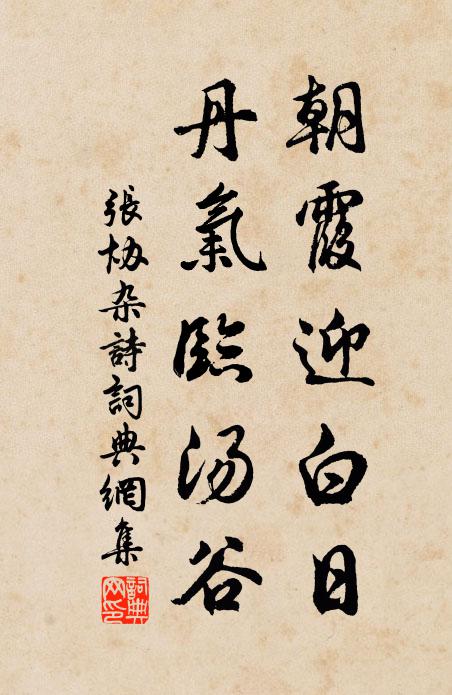 朝霞迎白日
丹氣臨汤谷
張协杂詩詞典網集
詞典网印